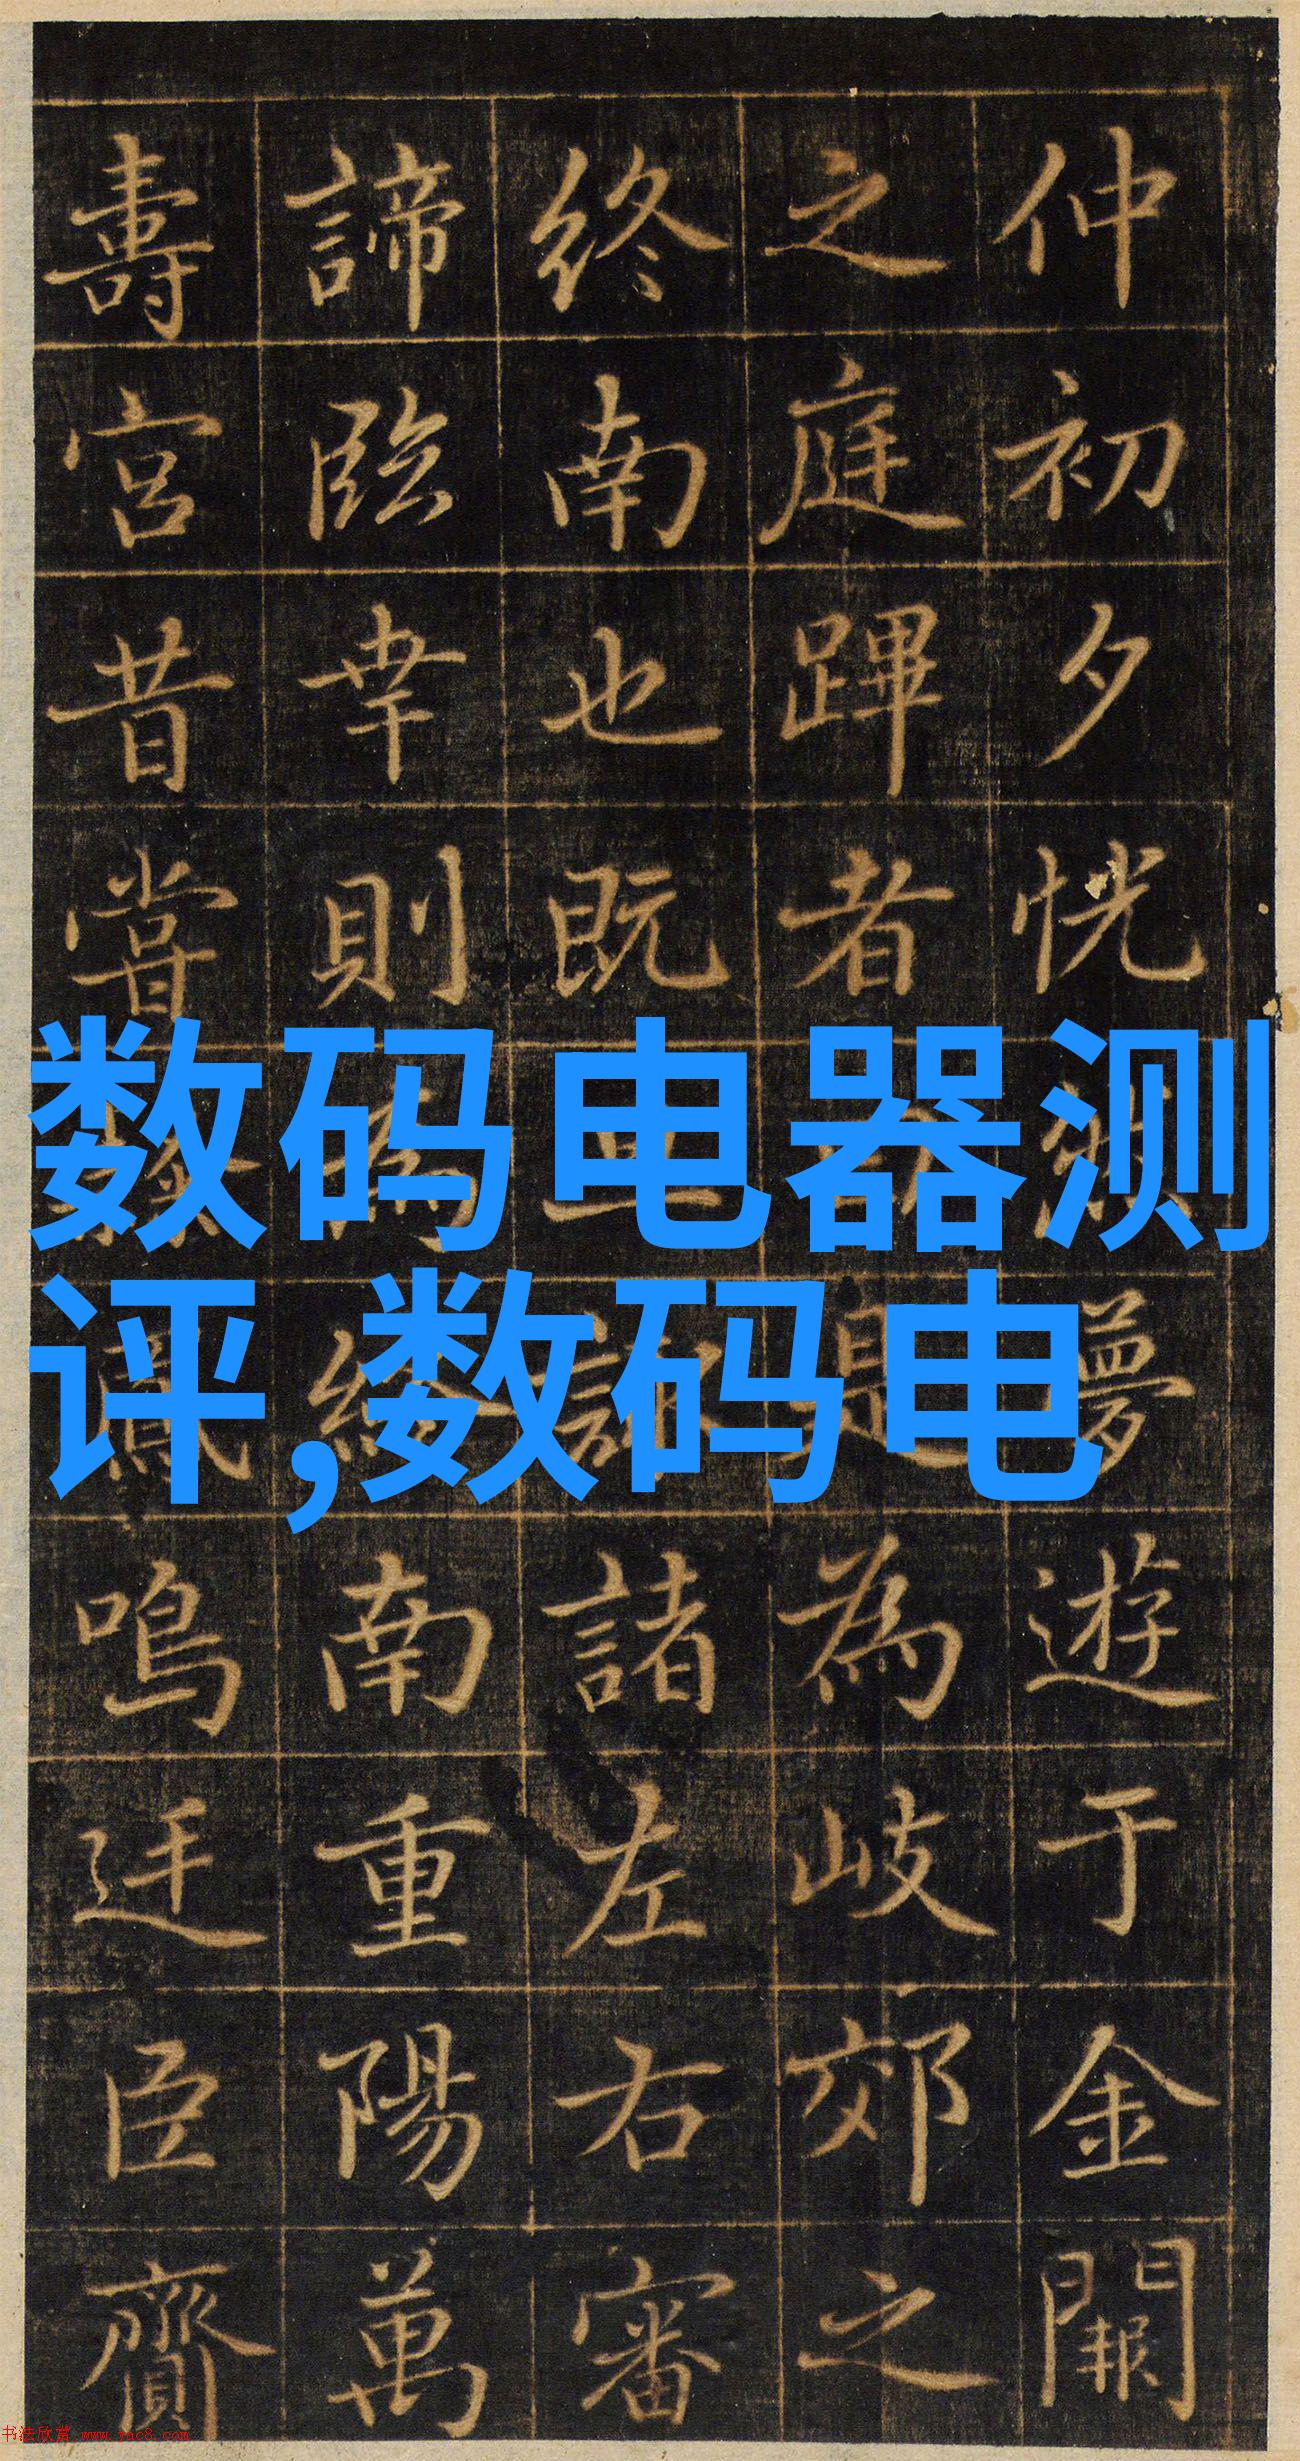 仲初夕恍夢遊于金闕
之庭蹕者是為岐郊之
終南也既諸左右審
諦臨幸則為終南重陽萬
壽宮昔嘗鳳鳴廷臣齎
数码电器测
评,数码电
书法欣赏 www.yac8.com